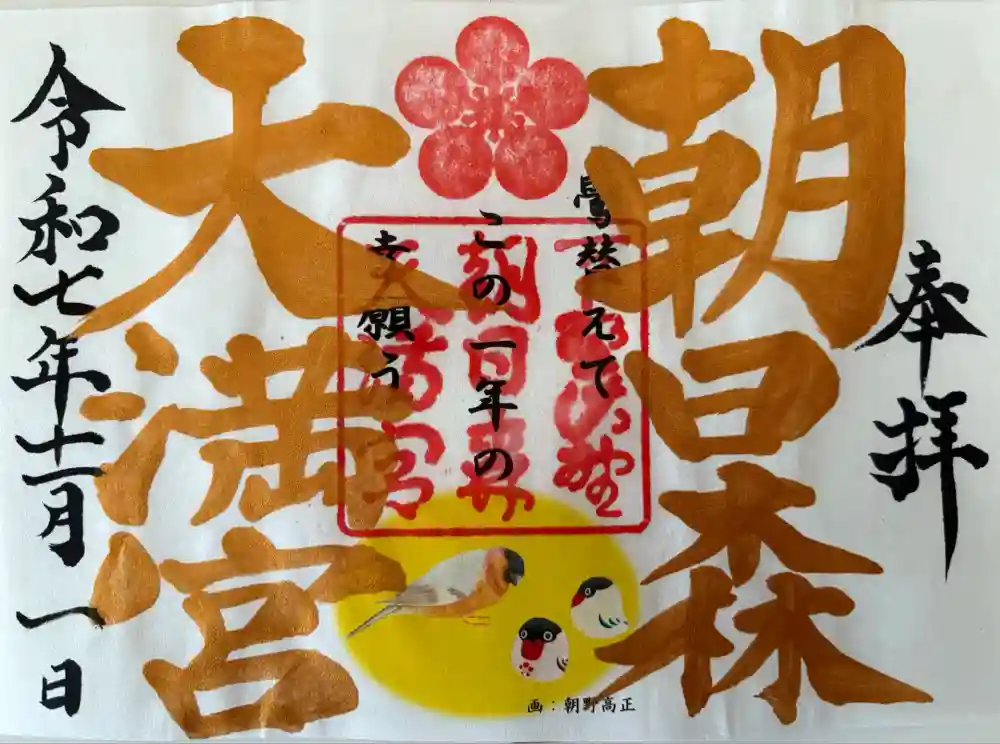 奉拝
朝日森
天満宮
鷽替えて
この一年の
幸願う
令和七年十一月一日
画：朝野高正